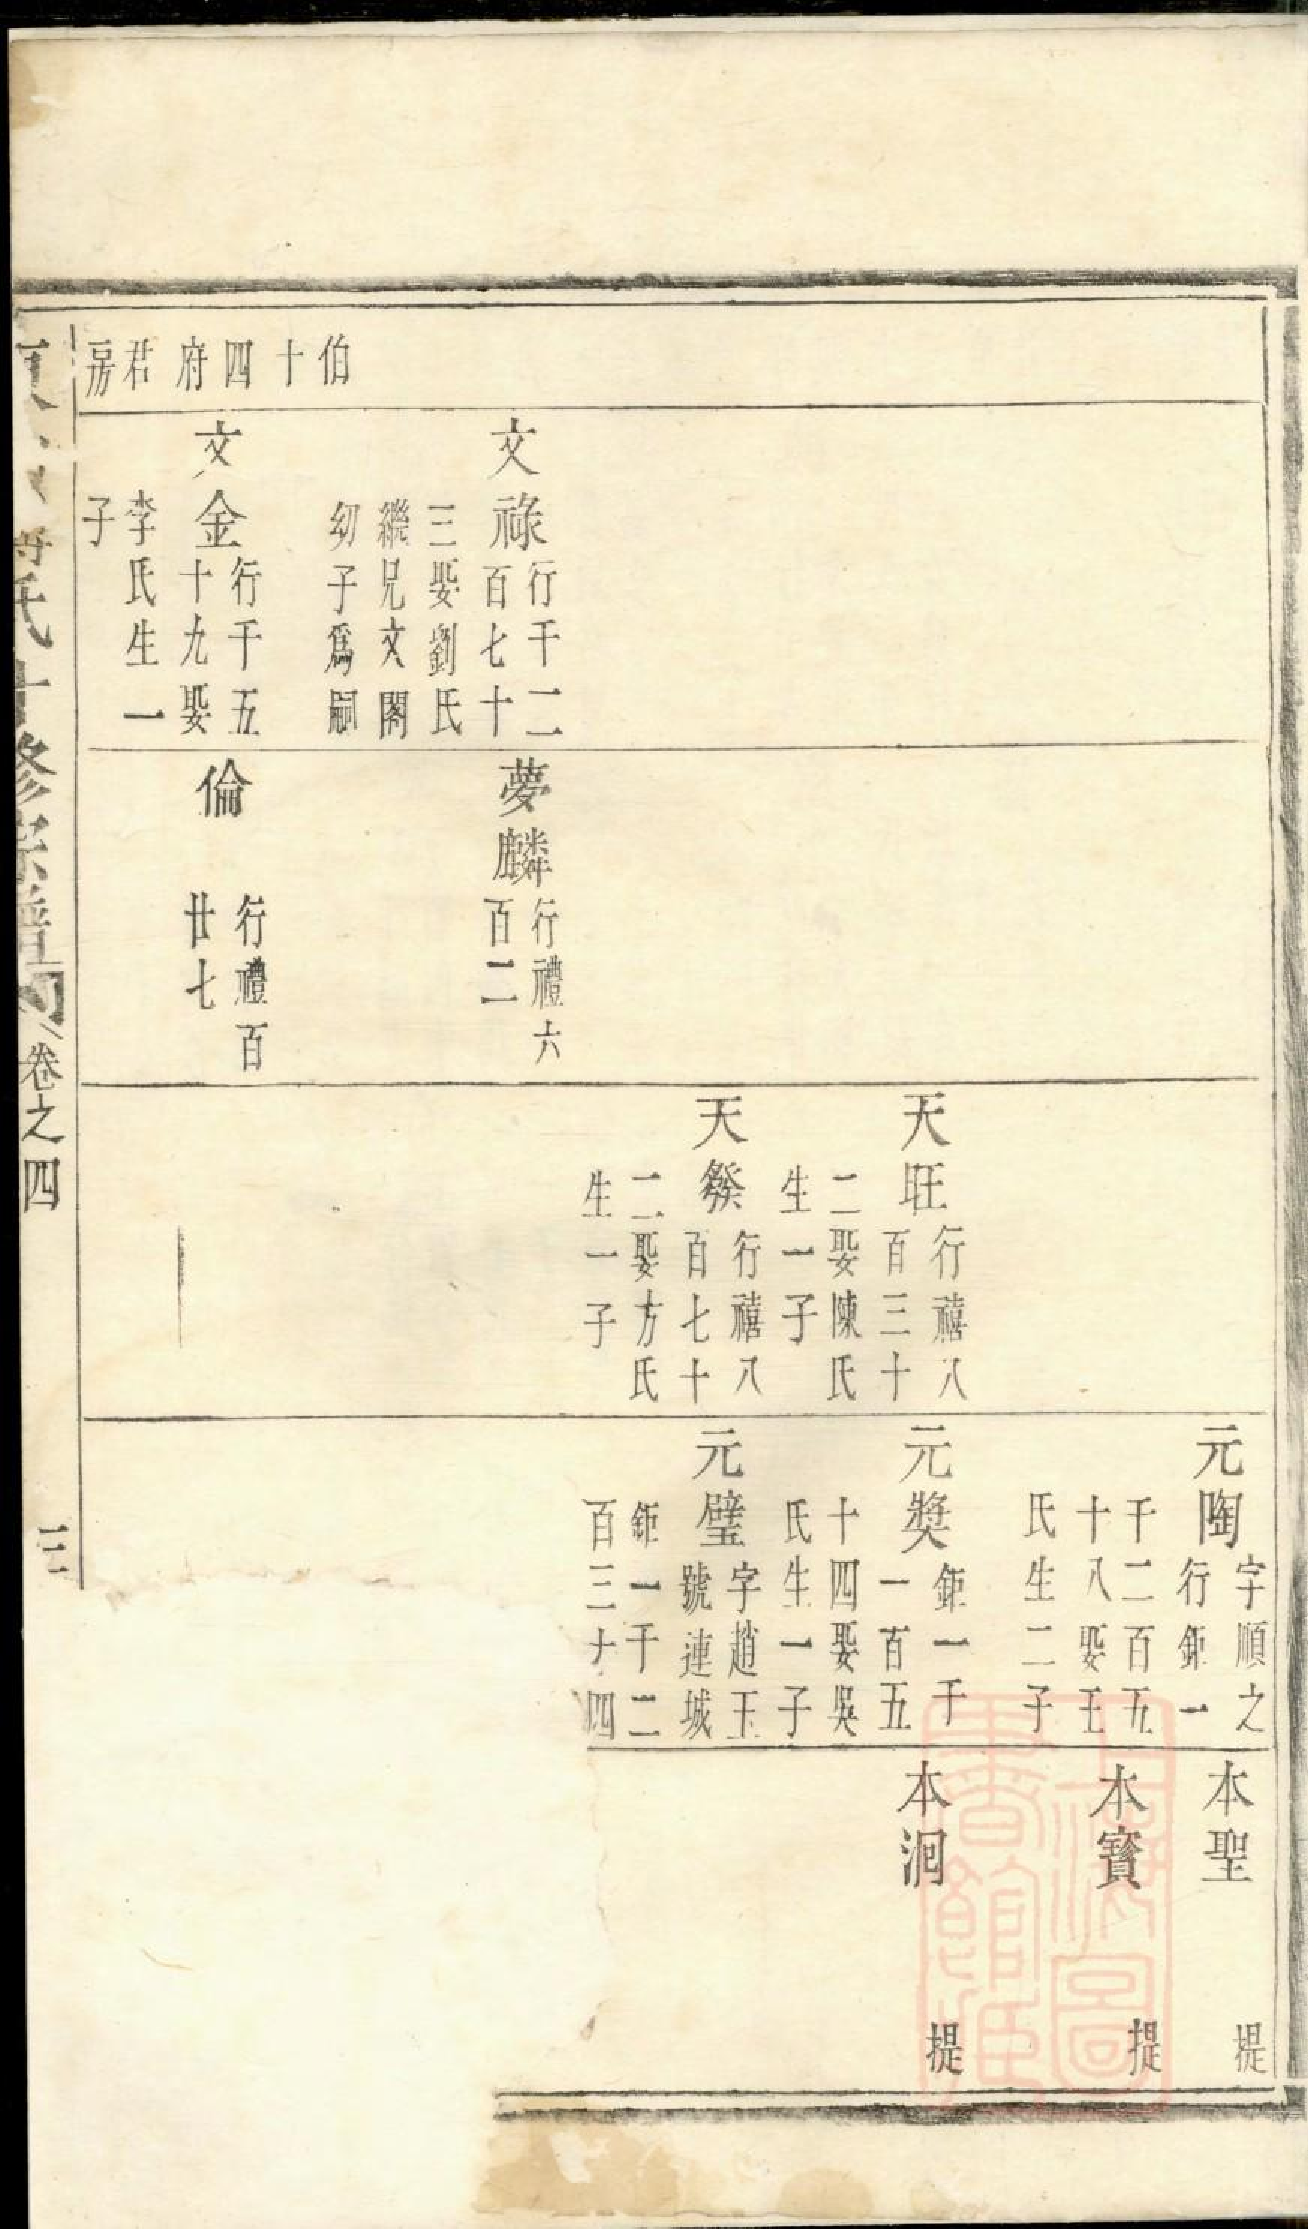 伯十四府君房
文祿
行千二
百七十
三娶劉氏
繼兄文閣
幼子爲嗣
文金
行千五
十九娶
李氏生一
子
夢麟
行禮六
百二
倫
行禮百
廿七
天旺
行禧八
百三十
二娶陳氏
生一子
天發
行禧八
百七十
二娶方氏
生一子
元陶
字順之
行鉅一
千二百五
十八娶王
氏生二子
元獎
鉅一千
一百五
十四娶吳
氏生一子
元璧
字趙玉
號連城
鉅一千二
百三十四
本聖
提
本寳
提
本泂
提
氏十修宗譜
卷之四
三
上海圖書館藏